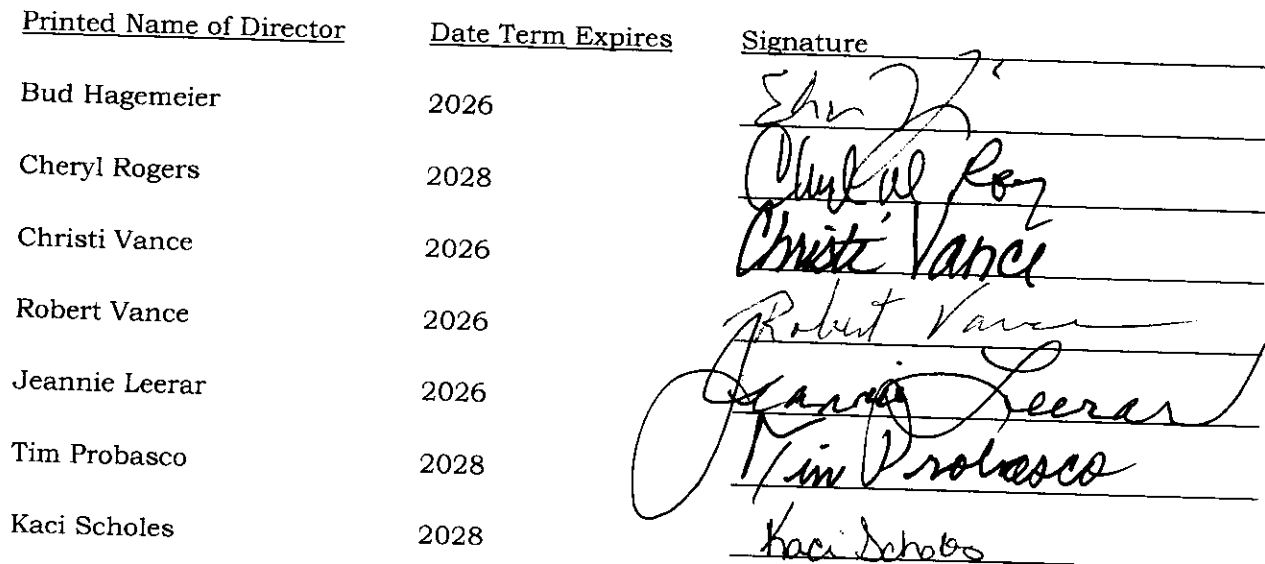 Printed Name of Director Date Term Expires Signature
Bud Hagemeier 2026
Cheryl Rogers 2028
Christi Vance 2026 Christi Vance
Robert Vance 2026 Robert Vance
Jeannie Leerar 2026 Jeannie Leerar
Tim Probasco 2028 Tim Probasco
Kaci Scholes 2028 Kaci Scholes